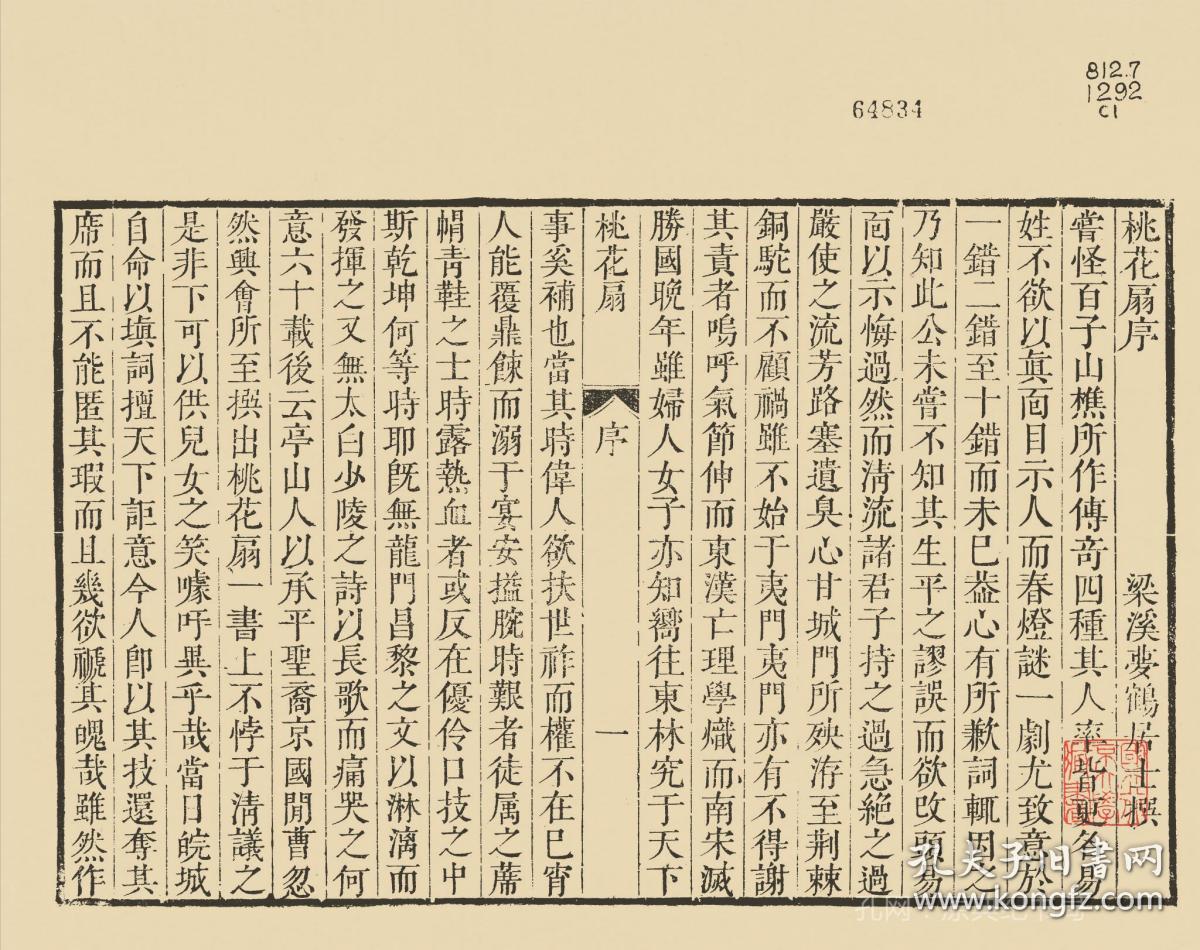 812.7
1292
C1
64834
桃花扇序
梁溪夢鶴居士撰
嘗怪百子山樵所作傳奇四種其人率皆更名易
姓不欲以眞面目示人而春燈謎一劇尤致意於
一錯二錯至十錯而未已葢心有所歉詞輒因之
乃知此公未嘗不知其生平之謬誤而欲改頭易
面以示悔過然而淸流諸君子持之過急絕之過
嚴使之流芳路塞遺臭心甘城門所殃洊至荆棘
銅駝而不顧禍雖不始于夷門夷門亦有不得謝
其責者嗚呼氣節伸而東漢亡理學熾而南宋滅
勝國晚年雖婦人女子亦知嚮往東林究于天下
桃花扇
序
一
事奚補也當其時偉人欲扶世祚而權不在已宵
人能覆鼎餗而溺于宴安搤腕時艱者徒属之蓆
帽靑鞋之士時露熱血者或反在優伶口技之中
斯乾坤何等時耶旣無龍門昌黎之文以淋漓而
發揮之又無太白少陵之詩以長歌而痛哭之何
意六十載後云亭山人以承平聖裔京國閒曹忽
然興會所至撰出桃花扇一書上不悖于淸議之
是非下可以供兒女之笑噱吁異乎哉當日皖城
自命以塡詞擅天下詎意今人卽以其技還奪其
席而且不能匿其瑕而且幾欲褫其魄哉雖然作
孔夫子旧书网
www.kongfz.com